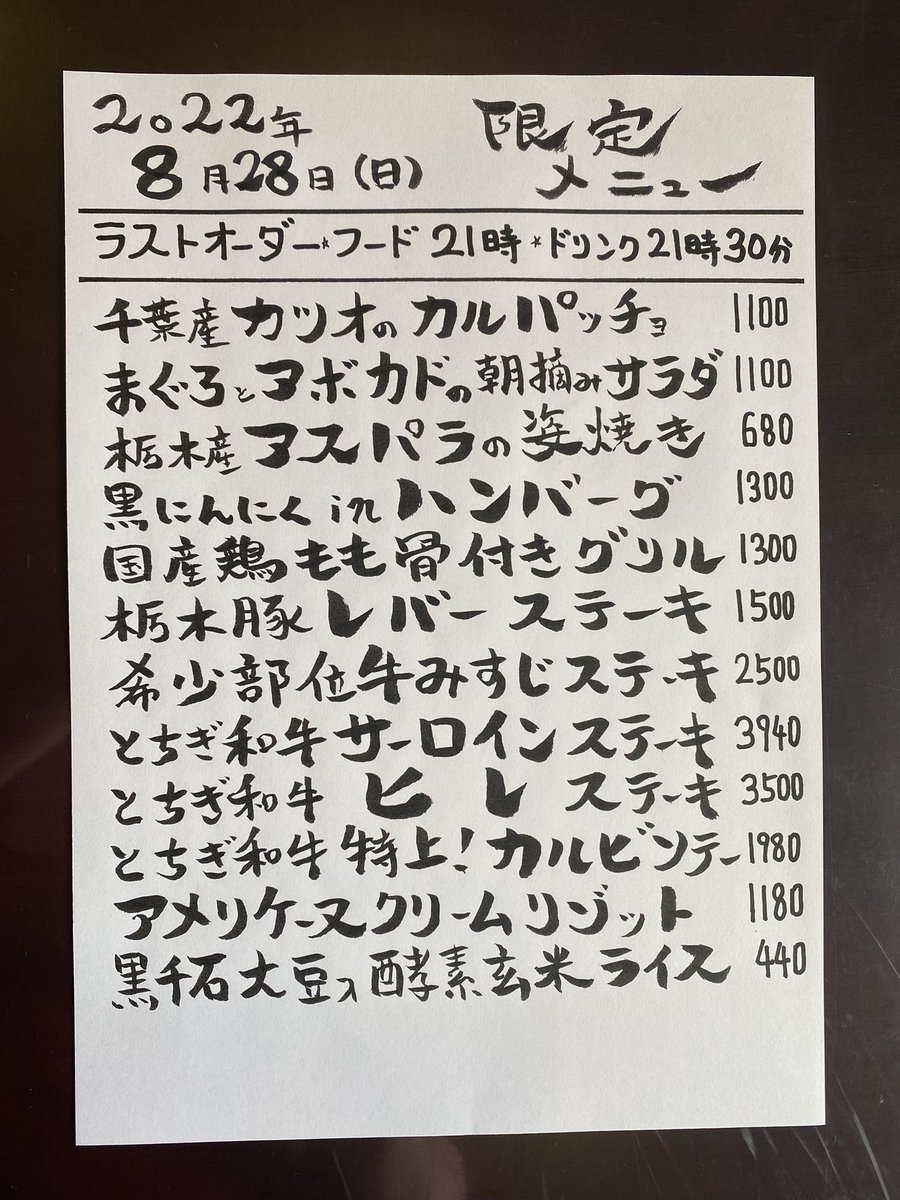 2022年 限定
8月28日(日) メニュー
ラストオーダー*フード 21時 *ドリンク21時30分
千葉産 カツオの カルパッチョ 1100
まぐろとアボカドの朝摘みサラダ 1100
栃木産 アスパラの姿焼き 680
黒にんにくinハンバーグ 1300
国産鶏もも骨付きグリル 1300
栃木豚レバーステーキ 1500
希少部位牛みすじステーキ 2500
とちぎ和牛サーロインステーキ 3940
とちぎ和牛 ヒレ ステーキ 3500
とちぎ和牛特上!カルビソテー 1980
アメリケーヌクリームリゾット 1180
黒千石大豆入酵素玄米ライス 440